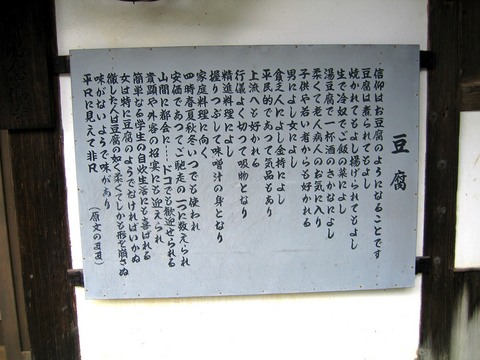 豆腐
信仰はお豆腐のようになることです
豆腐は煮られてもよし
焼かれてもよし揚げられてもよし
生で冷奴でご飯の菜によし
湯豆腐で一杯酒のさかなによし
柔くて老人病人のお気に入り
子供や若い者からも好かれる
男によし女によし
貧乏によし金持によし
平民的であって気品もあり
上流へも好かれる
行儀よく切って吸物となり
精進料理によし
握りつぶして味噌汁の身となり
家庭料理に向く
四時春夏秋冬いつでも使われ
安価であってご馳走の一つに数えられ
山間に都会に……ドコでも歓迎せられる
貴顕や外客の招宴にも迎えられ
簡単なる学生の自炊生活にも喜ばれる
女は特に豆腐のようでなければいかぬ
徹した人は豆腐の如く柔くてしかも形を崩さぬ
味がないようで味があり
平凡に見えて非凡
（原文のまま）